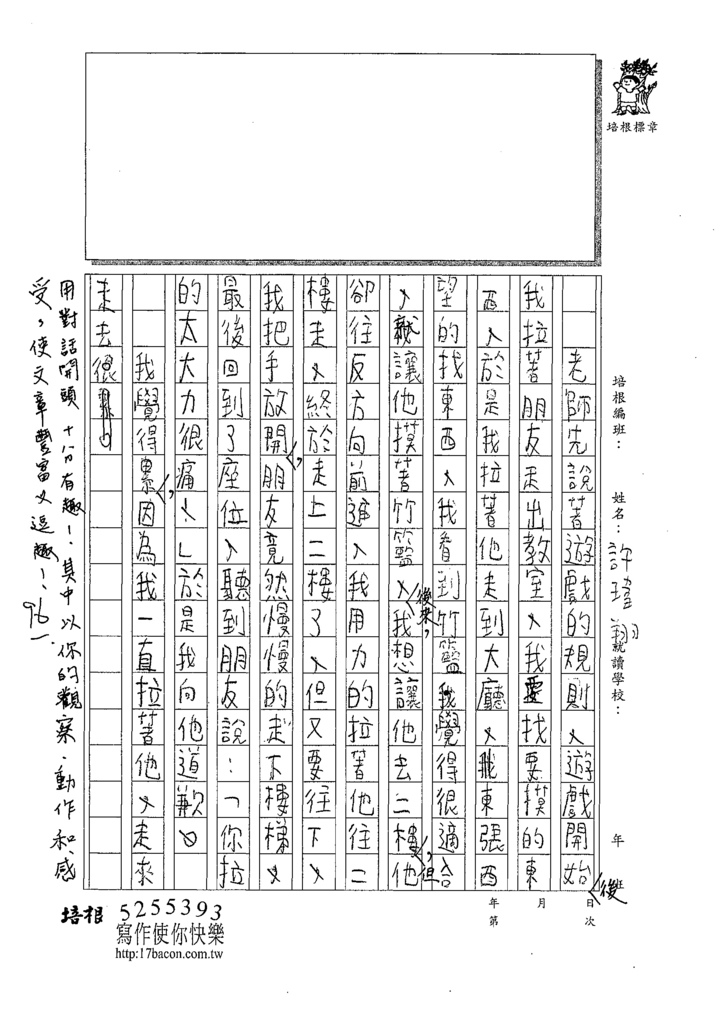 培根標章
培根編班：
姓名：許瑋翔
就讀學校：
年
班
老師先說著遊戲的規則，遊戲開始後
我拉著朋友走出教室，我要找要摸的東
西，於是我拉著他走到大廳，我東張西
望的找東西，我看到竹籃我覺得很適合
，就讓他摸著竹籃，後來，我想讓他去二樓，但他
卻往反方向前進，我用力的拉著他往二
樓走，終於走上二樓了，但又要往下，
我把手放開，朋友竟然慢慢的走下樓梯，
最後回到了座位，聽到朋友說：「你拉
的太大力很痛。」於是我向他道歉。
我覺得累，因為我一直拉著他，走來
走去很累。
用對話開頭十分有趣！其中以你的觀察、動作和感
受，使文章豐富又逗趣！
96
年 月 日
第 次
培根 5255393
寫作使你快樂
http:17bacon.com.tw